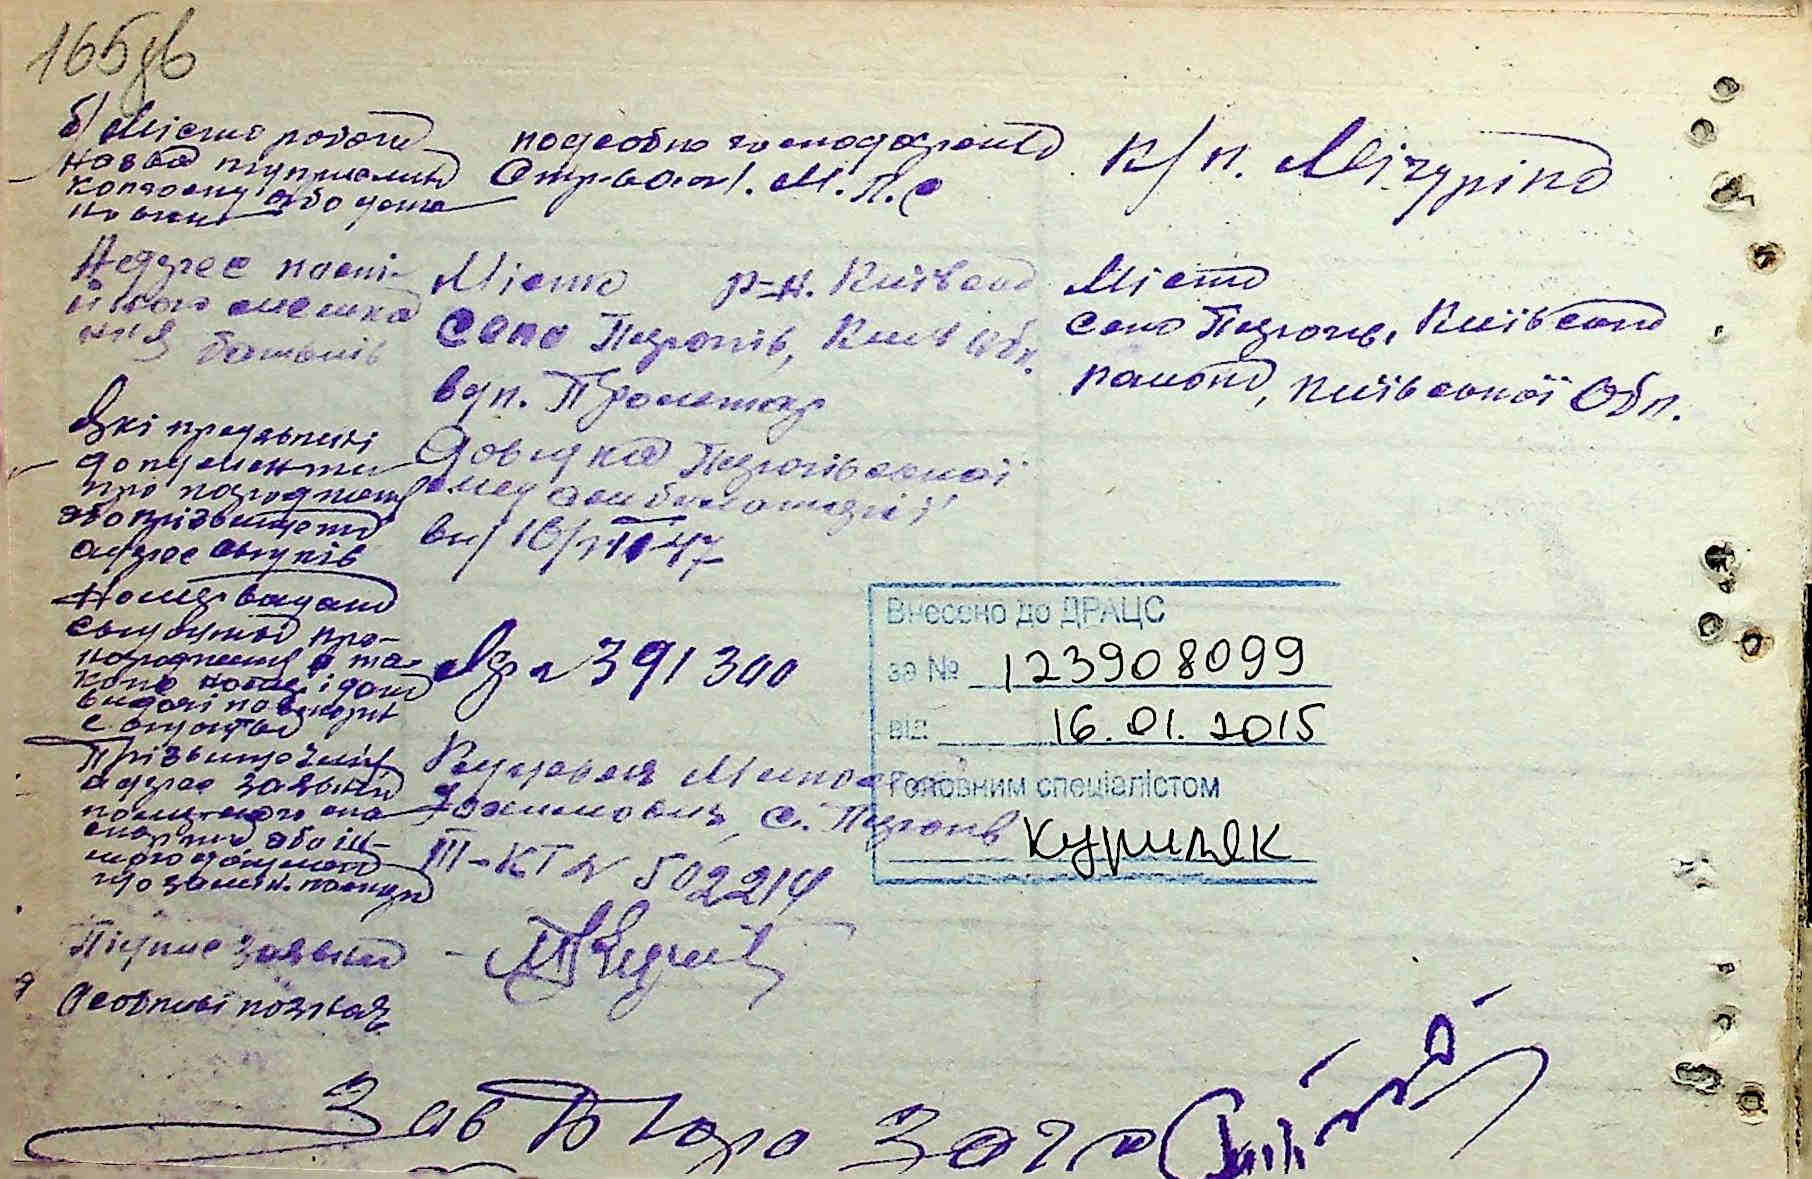 165 зв
б) Місце роботи
назва підприємст
колгоспу або уста
нови
подсобно господарство
М.П.С
к/п. Мічуріна
Адрес пості-
йного мешка
ння батьків
Місто р-н. Київськ
село Пирогів, Київ обл.
вул. Пролетар
Місто
село Пирогів, Київського
району, Київської Обл.
Які пред'явлені
документи
про народження
або прізвище та
адрес свідків
Довідка Пирогівської
мед амбулаторії
від 10/III 47
Номер видано
свідоцтва про-
народження а та-
кож номер і дата
видачі повторн
свідоцтва
№ 391300
Прізвище ім'я
адрес заявни
його паспорта або ін-
шого документа
що замін. паспорт
с. Пирогів
III-КТ № 502214
Підпис заявника -
Особливі познач.
Внесено до ДРАЦС
за № 123908099
від 16.01.2015
Головним спеціалістом
Куриляк
Зав Бюро Загс